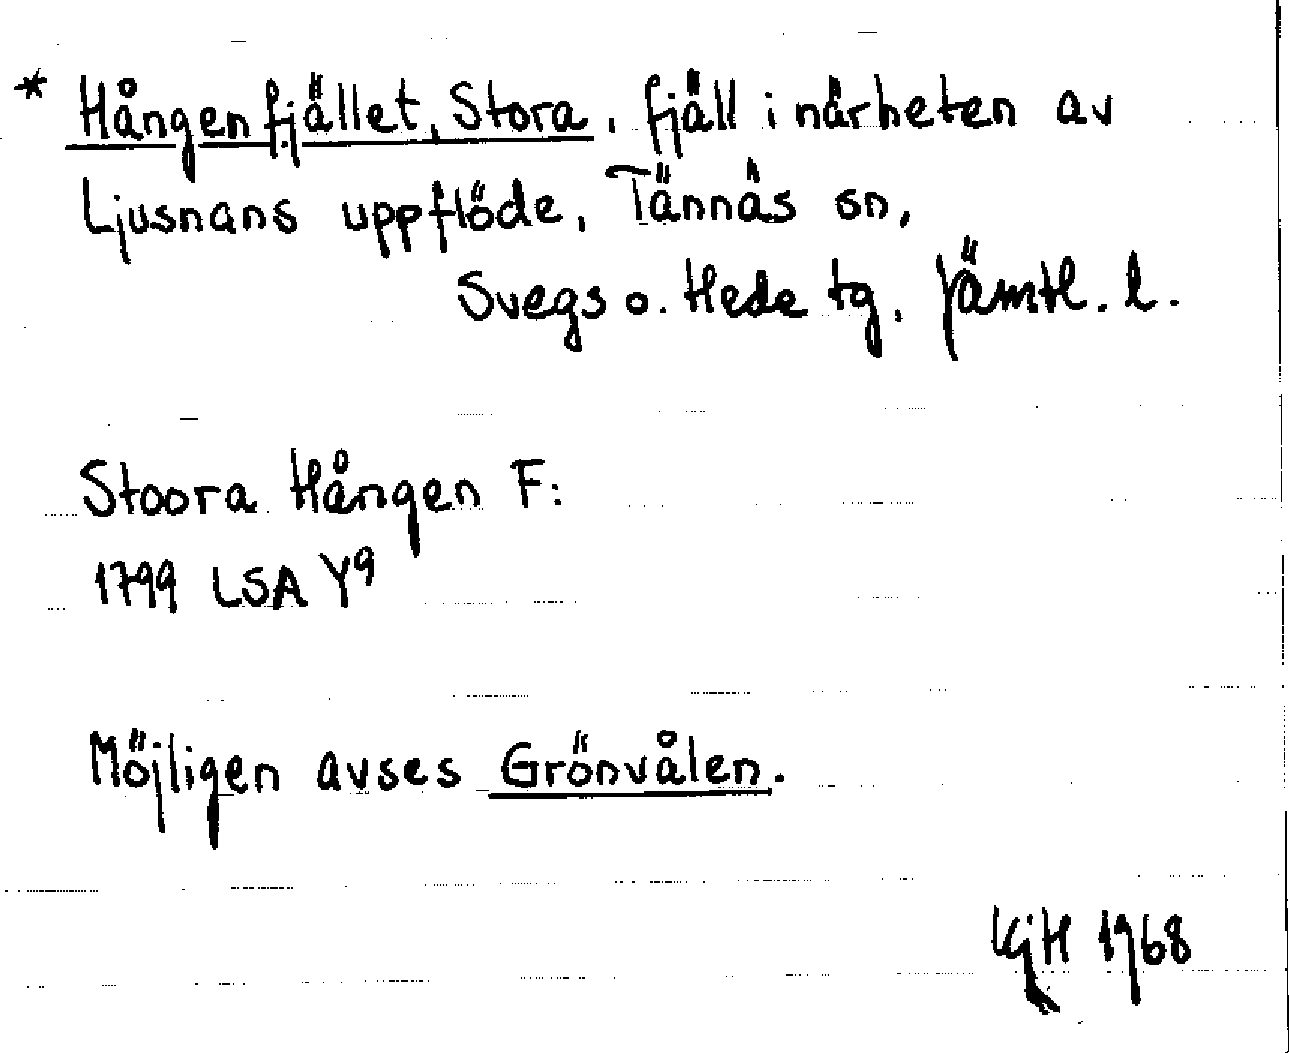 * Hångenfjället, Stora, fjäll i närheten av
Ljusnans uppflöde, Tännäs sn,
Svegs o. Hede tg, Jämtl. l.
Stoora Hången F:
1799 LSA Y9
Möjligen avses Grönvålen.
KjH 1968